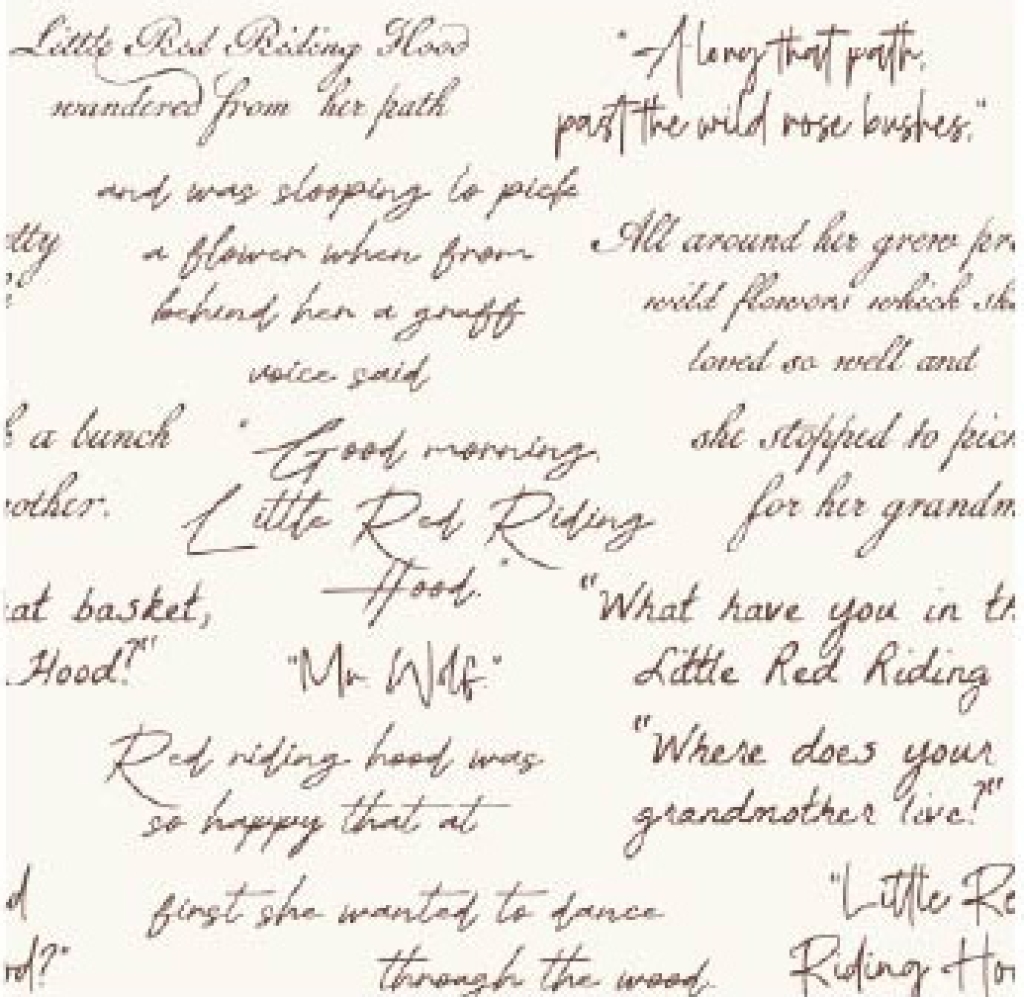 Little Red Riding Hood
wandered from her path
"Along that path,
past the wild rose bushes."
and was stooping to pick
a flower when from
behind her a gruff
voice said
etty
All around her grew pr
wild flowers which sh
loved so well and
k a bunch
other.
she stopped to pick
for her grandm
"Good morning,
Little Red Riding
Hood."
at basket,
Hood?"
"What have you in th
Little Red Riding
"Mr. Wolf."
"Where does your
grandmother live?"
Red riding hood was
so happy that at
first she wanted to dance
through the wood.
d
od?"
"Little Re
Riding Hoo